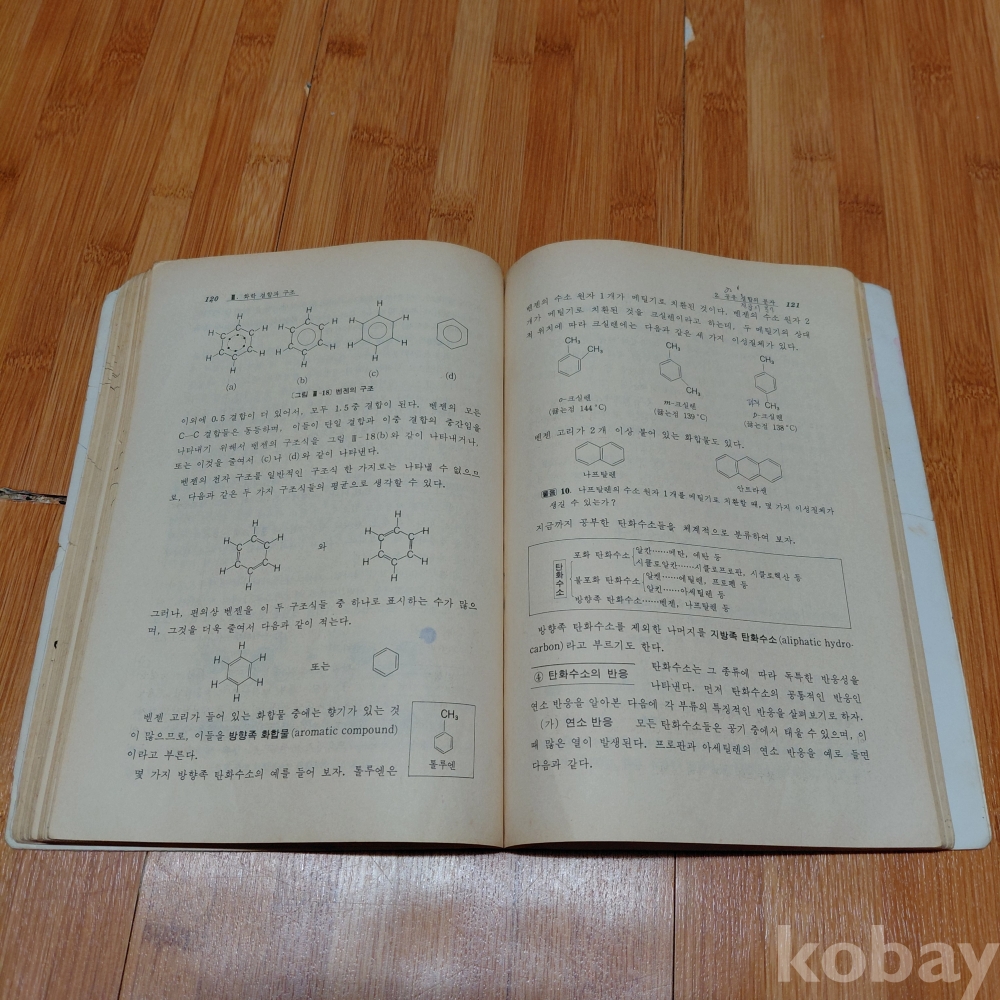 120 Ⅲ. 화학 결합과 구조
(a) (b) (c) (d)
〔그림 Ⅲ-18〕 벤젠의 구조
이외에 0.5 결합이 더 있어서, 모두 1.5중 결합이 된다. 벤젠의 모든
C—C 결합들은 동등하며, 이들이 단일 결합과 이중 결합의 중간임을
나타내기 위해서 벤젠의 구조식을 그림 Ⅲ-18(b)와 같이 나타내거나,
또는 이것을 줄여서 (c)나 (d)와 같이 나타낸다.
벤젠의 전자 구조를 일반적인 구조식 한 가지로는 나타낼 수 없으므
로, 다음과 같은 두 가지 구조식들의 평균으로 생각할 수 있다.
와
그러나, 편의상 벤젠을 이 두 구조식들 중 하나로 표시하는 수가 많으
며, 그것을 더욱 줄여서 다음과 같이 적는다.
또는
벤젠 고리가 들어 있는 화합물 중에는 향기가 있는 것
이 많으므로, 이들을 방향족 화합물(aromatic compound)
이라고 부른다.
몇 가지 방향족 탄화수소의 예를 들어 보자. 톨루엔은
CH₃
톨루엔
121
벤젠의 수소 원자 1개가 메틸기로 치환된 것이다. 벤젠의 수소 원자 2
개가 메틸기로 치환된 것을 크실렌이라고 하는데, 두 메틸기의 상대
적 위치에 따라 크실렌에는 다음과 같은 세 가지 이성질체가 있다.
CH₃ CH₃ CH₃ CH₃ CH₃ CH₃
o-크실렌 m-크실렌 p-크실렌
(끓는점 144°C) (끓는점 139°C) (끓는점 138°C)
벤젠 고리가 2개 이상 붙어 있는 화합물도 있다.
나프탈렌 안트라센
10. 나프탈렌의 수소 원자 1개를 메틸기로 치환할 때, 몇 가지 이성질체가
생길 수 있는가?
지금까지 공부한 탄화수소들을 체계적으로 분류하여 보자.
탄화수소
포화 탄화수소
알칸……메탄, 에탄 등
시클로알칸……시클로프로판, 시클로헥산 등
불포화 탄화수소
알켄……에틸렌, 프로펜 등
알킨……아세틸렌 등
방향족 탄화수소……벤젠, 나프탈렌 등
방향족 탄화수소를 제외한 나머지를 지방족 탄화수소(aliphatic hydro-
carbon)라고 부르기도 한다.
④ 탄화수소의 반응
탄화수소는 그 종류에 따라 독특한 반응성을
나타낸다. 먼저 탄화수소의 공통적인 반응인
연소 반응을 알아본 다음에 각 부류의 특징적인 반응을 살펴보기로 하자.
(가) 연소 반응 모든 탄화수소들은 공기 중에서 태울 수 있으며, 이
때 많은 열이 발생된다. 프로판과 아세틸렌의 연소 반응을 예로 들면
다음과 같다.
kobay